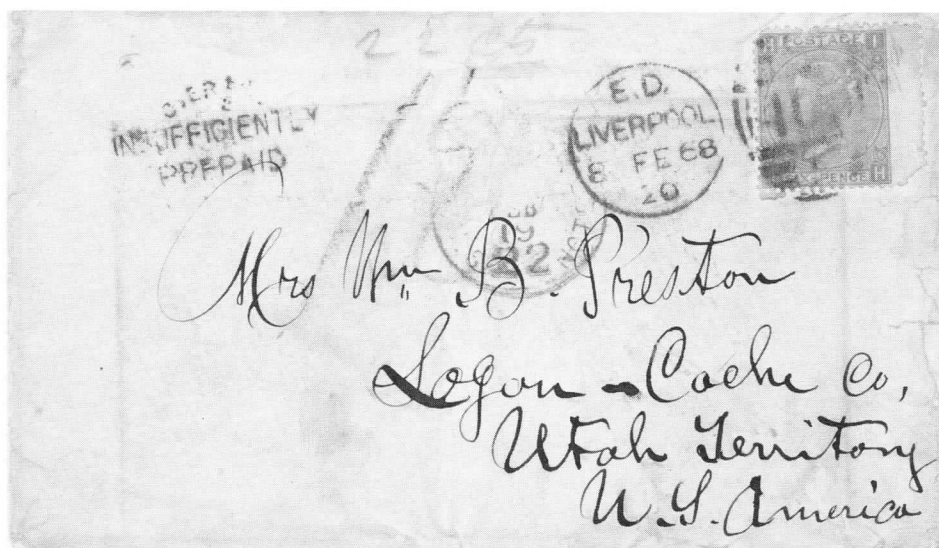 INSUFFICIENTLY
PREPAID
E.D.
LIVERPOOL
8 FE 68
20
POSTAGE
SIX PENCE
Mrs Wm B. Preston
Logan - Cache Co,
Utah Territory
U.S. America